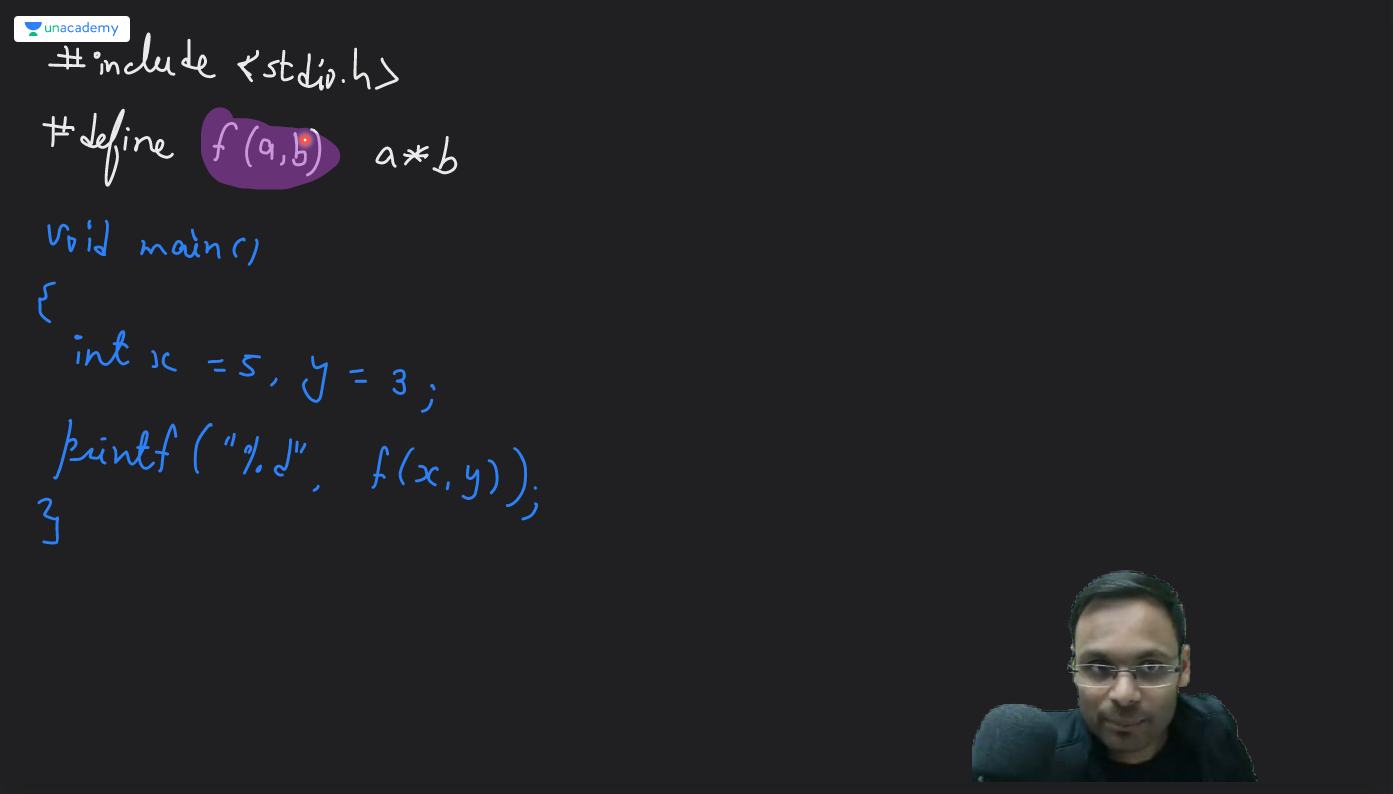 unacademy
#include <stdio.h>
#define f(a,b) a*b
void main()
{
int x = 5, y = 3;
printf("%d", f(x,y));
}